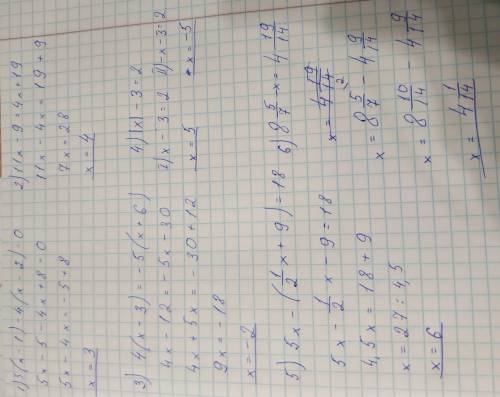 1) 5(x-1)-4(x-2)=0
5x-5-4x+8=0
5x-4x=-5+8
x=3
2) 11x-9=4x+19
11x-4x=19+9
7x=28
x=4
3) 4(x-3)=-5(x+6)
4x-12=-5x-30
4x+5x=-30+12
9x=-18
x=-2
4) |x|-3=2
x-3=2 II) -x-3=2
x=5 x=-5
5) 5x-(1/2x+9)=18
5x-1/2x-9=18
4,5x=18+9
x=27:4,5
x=6
6) 8 5/7-x=4 19/14
x=8 5/7-4 9/14
x=8 10/14-4 9/14
x=4 1/14